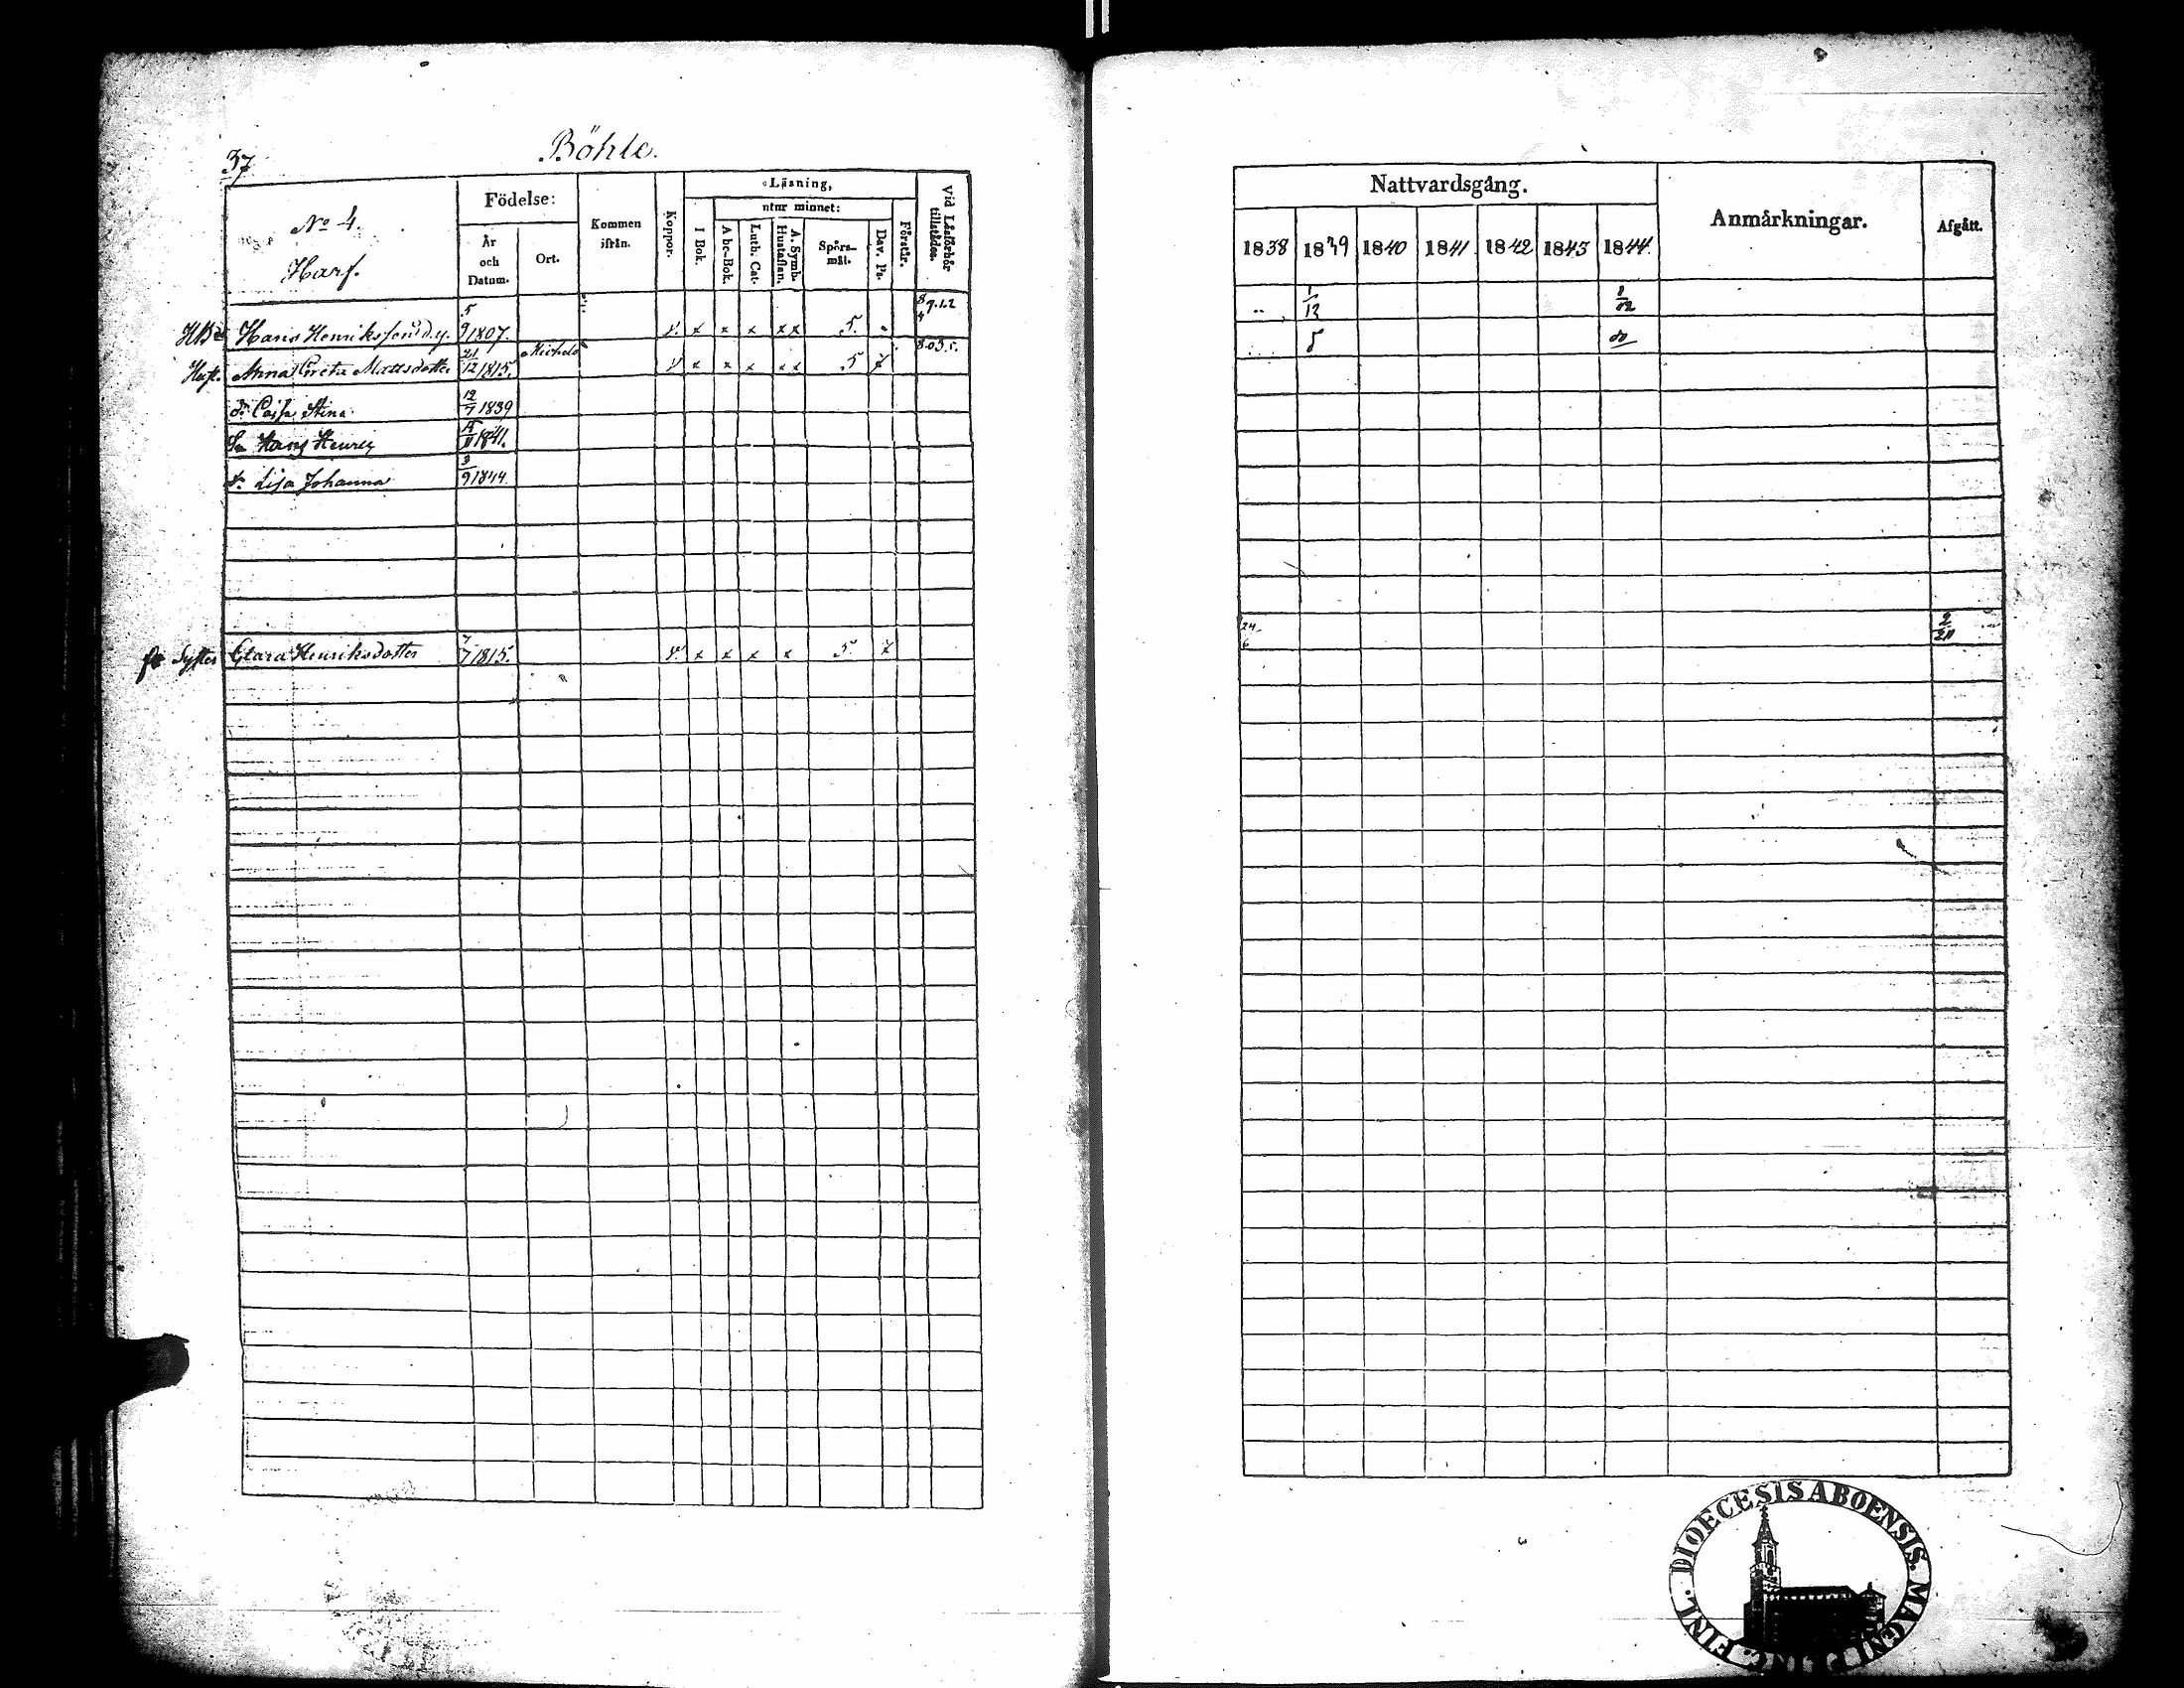 37
Böhle.
No 4.
Harf.
Födelse:
År
och
Datum.
Ort.
Kommen
ifrån.
Koppor.
Läsning,
I Bok.
utur minnet:
Abc-Bok.
Luth. Cat.
A. Symb.
Hustaflan.
Spörs-
mål.
Dav. Ps.
Förstår.
Vid Läsförhör
tillstädes.
Hans Henriksson d.y. 5/9 1807. v. x x x x x 5.
Hust. Anna Greta Mattsdotter 21/12 1815. Michels v x x x x x 5 7
dr Cajsa Stina 12/7 1839
Sn Hans Henric 1841.
dr Lisa Johanna 3/9 1844.
Syster Clara Henriksdotter 7/7 1815. v. x x x x 5 7
Nattvardsgång.
1838 1839 1840 1841 1842 1843 1844.
Anmärkningar.
Afgått.
1/12
24/6
DIOECESIS ABOENSIS. MAGNI DUC. FINL.